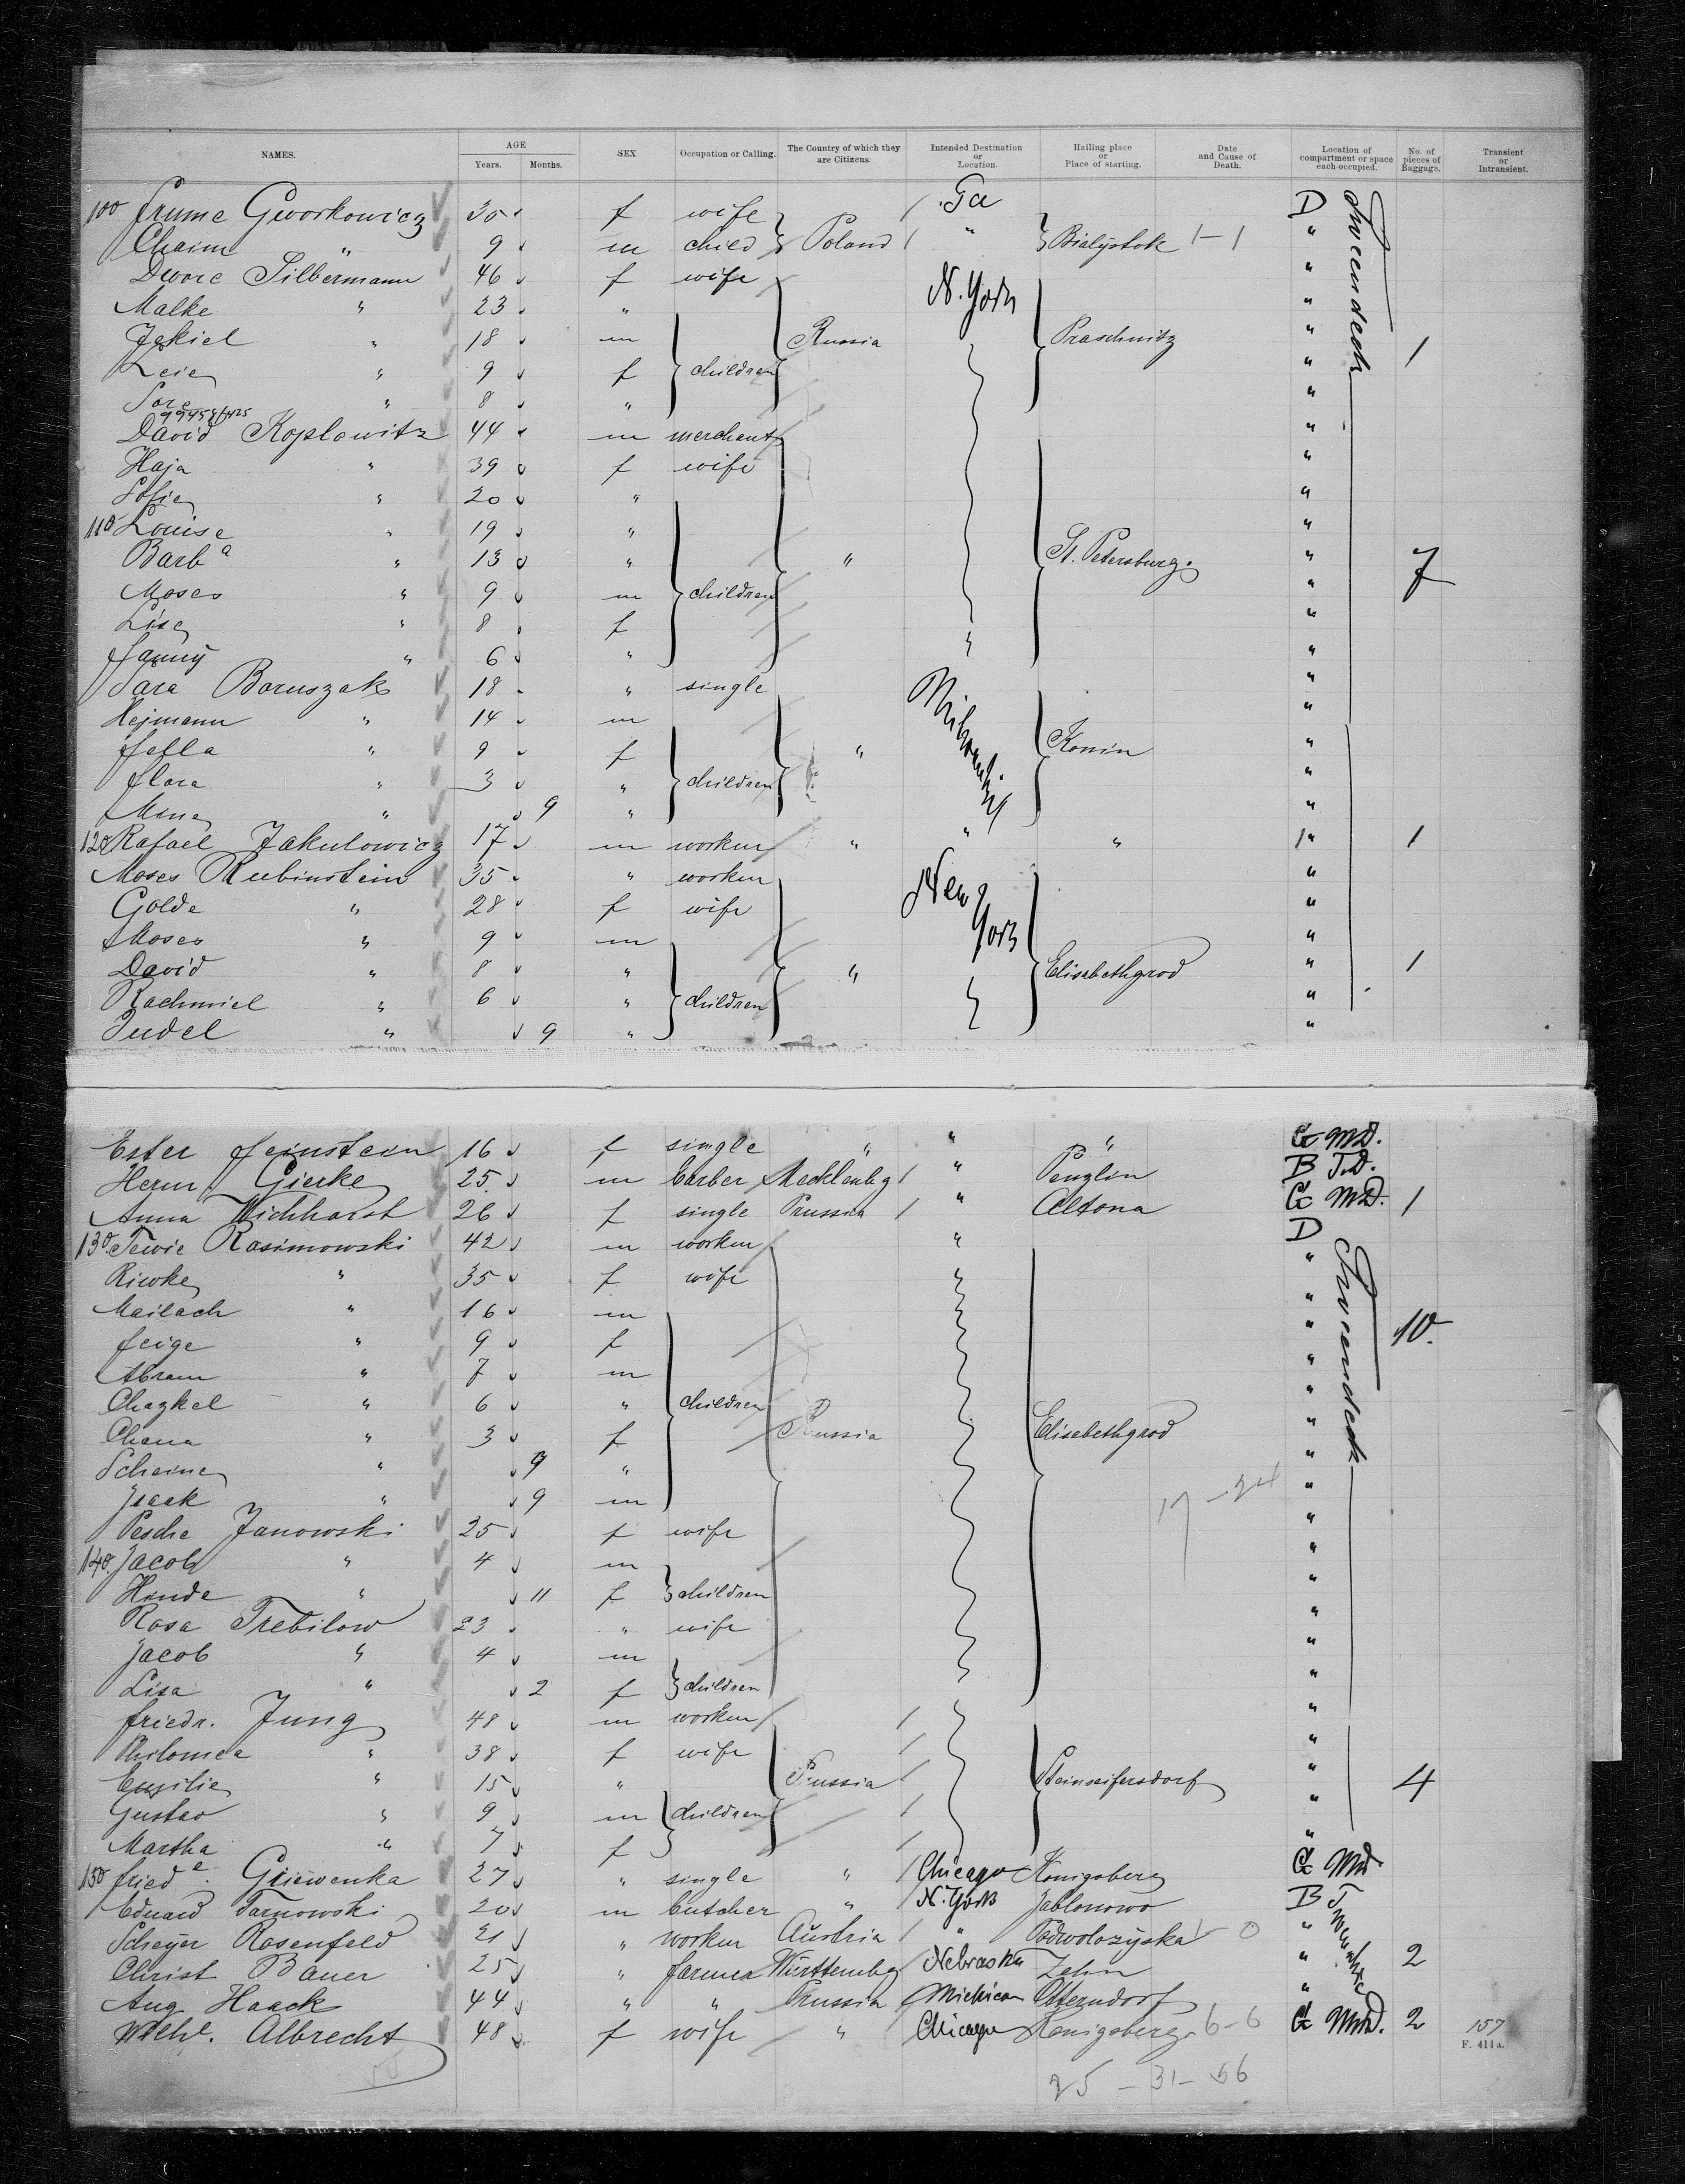 NAMES. AGE Years. Months. SEX Occupation or Calling. The Country of which they are Citizens. Intended Destination or Location. Hailing place or Place of starting. Date and Cause of Death. Location of compartment or space each occupied. No. of pieces of Baggage. Transient or Intransient.
100 Frume Gworkowicz 30 f wife / Pa D
Chaim " 9 m child Poland / " Bialystok 1-1 "
Dwore Silbermann 46 f wife "
Malke " 23 " N. York "
Jekiel " 18 m Russia Praschnitz "
Leie " 9 f children " 1
Sore " 8 " "
David Koplowitz 44 m merchant "
Haja " 39 f wife "
Sofie " 20 " "
110 Louise " 19 " "
Barba " 13 " " St. Petersburg. " 7
Moses " 9 m children "
Lise " 8 f "
Fanny " 6 " " "
Sara Boruszak 18 " single "
Hejmann " 14 m "
Jella " 9 f " Konin "
Flora " 3 " children "
Mine " 9 " "
120 Rafael Jakulowicz 17 m worker " " " 1" 1
Moses Rubinstein 35 " worker "
Golde " 28 f wife New York "
Moses " 9 m "
David " 8 " " Elisabethgrod " 1
Rachmiel " 6 " children "
Judel " 9 " "
Ester Feinstein 16 f single " " " G MD.
Herm. Gierke 25 m barber Mecklenbg / " Penzlin B T.D.
Anna Wichhorst 26 f single Prussia / " Altona G MD. 1
130. Tewie Rasimowski 42 m worker " D
Riwke " 35 f wife "
Mailach " 16 m "
Feige " 9 f " 10.
Abram " 7 m "
Chazkel " 6 " children "
Chana " 3 f Russia Elisabethgrod "
Scheine " 9 " "
Isaak " 9 m 17-24 "
Pesche Janowski 25 f wife "
140. Jacob " 4 m "
Hinde " 11 f children "
Rosa Trebilow 23 " wife "
Jacob " 4 m "
Lisa " 2 f children "
Friedr. Jung 48 m worker / "
Philomea " 38 f wife / "
Emilie " 15 " Prussia / Steinseifersdorf " 4
Gustav " 9 m children / "
Martha " 7 f / "
150 Friede. Griewenka 27 " single " / Chicago Konigsberg G Md.
Eduard Tarnowski 20 m butcher " / N. York Jablonowo B
Scheyer Rosenfeld 21 " worker Austria / " Podwolozyska 1-0 "
Christ Bauer 25 " farmer Württembg Nebraska Zehn " 2
Aug Haack 44 " " Prussia / Michican Otterndorf "
Wilhe. Albrecht 48 f wife " Chicago Konigsberg 6-6 G MD. 2 157
F. 414 a.
25-31-56